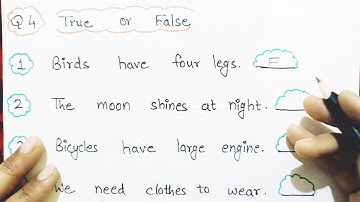 Q4 True or False
1 Birds have four legs. F
2 The moon shines at night.
3 Bicycles have large engine.
We need clothes to wear.